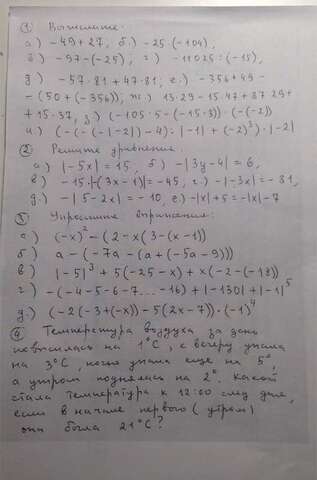 ① Вычислите:
а) -49+27; б) -25·(-104),
в) -97-(-25); г) -11025:(-15),
д) -57·81+47·81; е) -356+49-
-(50+(-356)); ж) 13·29-15·47+87·29+
+15·37, з) (-105·5-(-15·8))·(-(-2))
и) (-(-(-|-2|)-4):|-1|+(-2)³)·|-2|
② Решите уравнение:
а) |-5x|=15, б) -|3y-4|=6,
в) -15·|-(3x-1)|=-45, г) -|-3x|=-81,
д) -|5-2x|=-10, е) -|x|+5=-|x|-7
③ Упростите выражения:
а) (-x)²-(2-x(3-(x-1))
б) a-(-7a-(a+(-5a-9)))
в) |-5|³+5(-25-x)+x(-2-(-13))
г) -(-4-5-6-7...-16)+|-130|+|-1|⁵
д) (-2(-3+(-x))-5(2x-7))·(-1)⁴
④ Температура воздуха за день
повысилась на 1°C, к вечеру упала
на 3°C, ночью упала ещё на 5°,
а утром поднялась на 2°. Какой
стала температура к 12:00 след дня,
если в начале первого (утром)
она была 21°C?